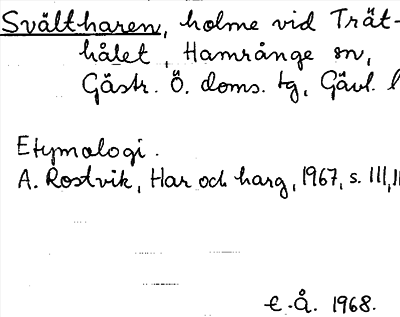 Svältharen, holme vid Trät-
hålet, Hamrånge sn,
Gästr. Ö. doms. tg, Gävl. l
Etymologi.
A. Rostvik, Har och harg, 1967, s. 111,
E.Å. 1968.